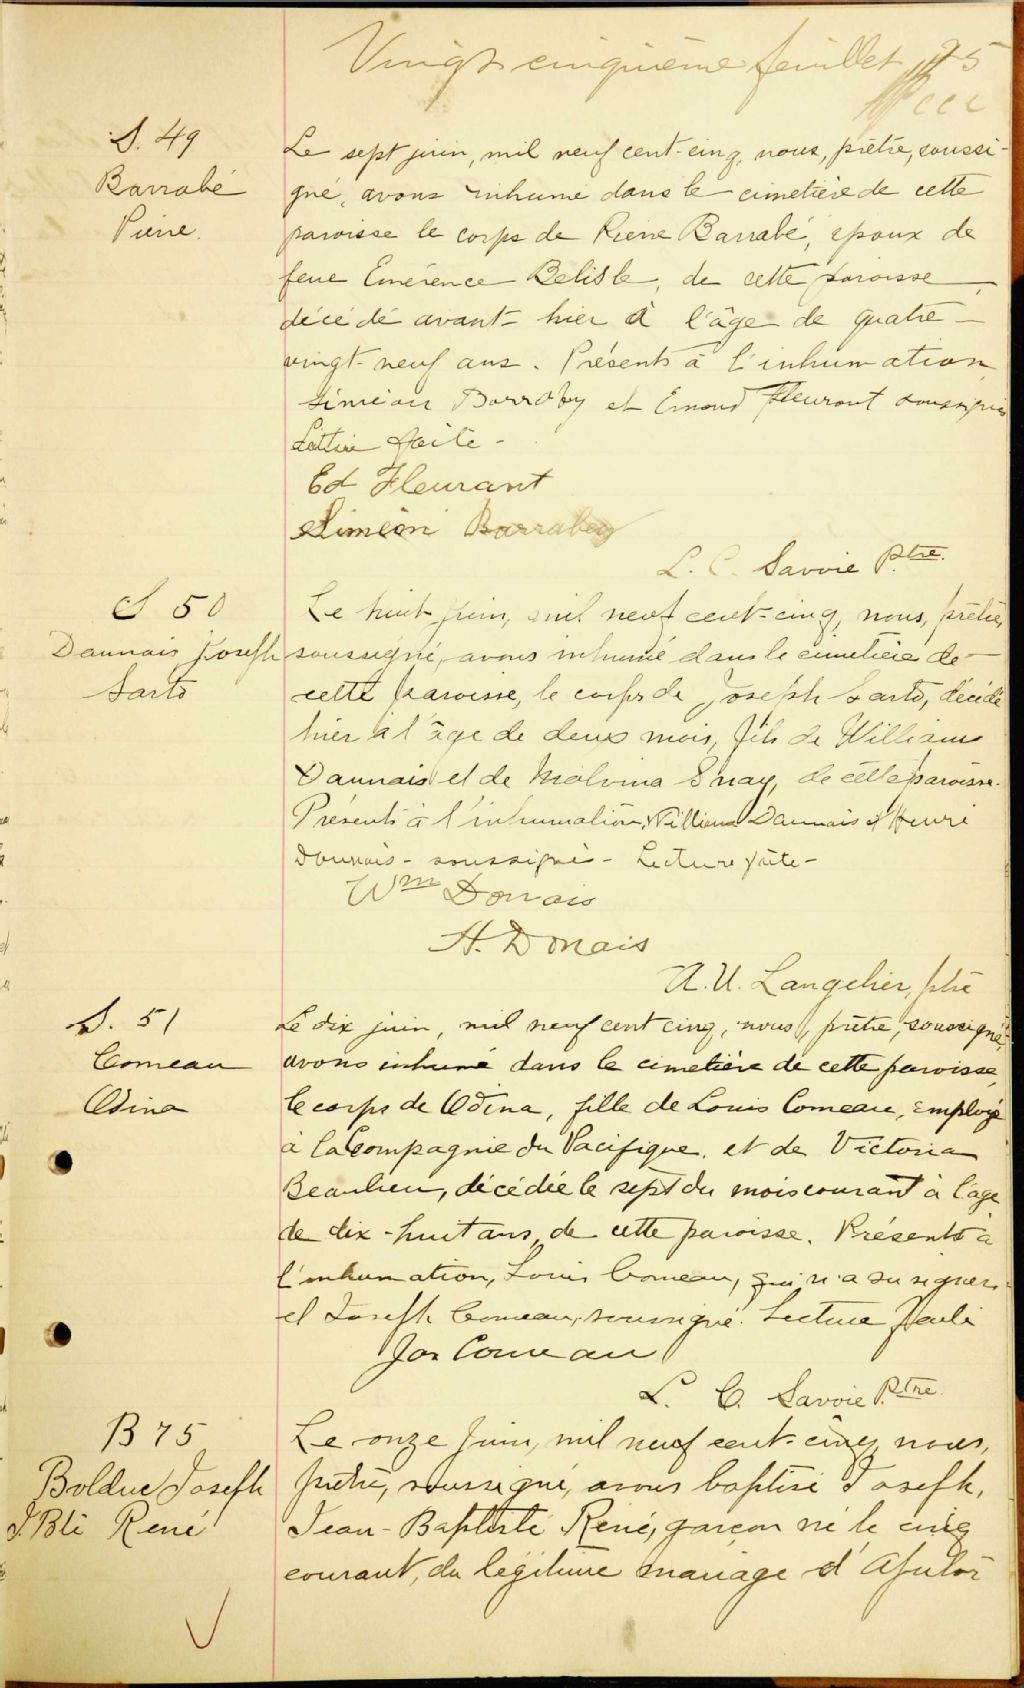 Vingt cinquième feuillet 25
S. 49
Barrabé
Pierre.
Le sept juin, mil neuf cent-cinq, nous, prêtre, soussi-
gné, avons inhumé dans le cimetière de cette
paroisse le corps de Pierre Barrabé, époux de
feue Emérence Belisle, de cette paroisse,
décédé avant-hier à l'âge de quatre-
vingt-neuf ans. Présents à l'inhumation,
Siméon Barraby et Emond Fleurant soussignés
Lecture faite -
Ed Fleurant
Siméon Barrabey
L. C. Savoie Ptre.
S 50
Daunais Joseph
Sarto
Le huit juin, mil neuf cent-cinq, nous, prêtre,
soussigné, avons inhumé dans le cimetière de
cette paroisse, le corps de Joseph Sarto, décédé
hier à l'âge de deux mois, fils de William
Daunais et de Malvina Snay, de cette paroisse.
Présents à l'inhumation, William Daunais et Henri
Daunais - soussignés - Lecture faite -
Wm Donais
H. Donais
A. U. Langelier, ptre
S. 51
Comeau
Odina
Le dix juin, mil neuf cent cinq, nous, prêtre, soussigné,
avons inhumé dans le cimetière de cette paroisse,
le corps de Odina, fille de Louis Comeau, employé
à la Compagnie du Pacifique, et de Victoria
Beaulieu, décédée le sept du mois courant à l'âge
de dix-huit ans, de cette paroisse. Présents à
l'inhumation, Louis Comeau, qui n'a su signer,
et Joseph Comeau, soussigné. Lecture faite
Jos Comeau
L. C. Savoie Ptre.
B 75
Bolduc Joseph
J Bte René
Le onze juin, mil neuf cent-cinq, nous,
prêtre, soussigné, avons baptisé Joseph,
Jean-Baptiste René, garçon né le cinq
courant, du légitime mariage d'